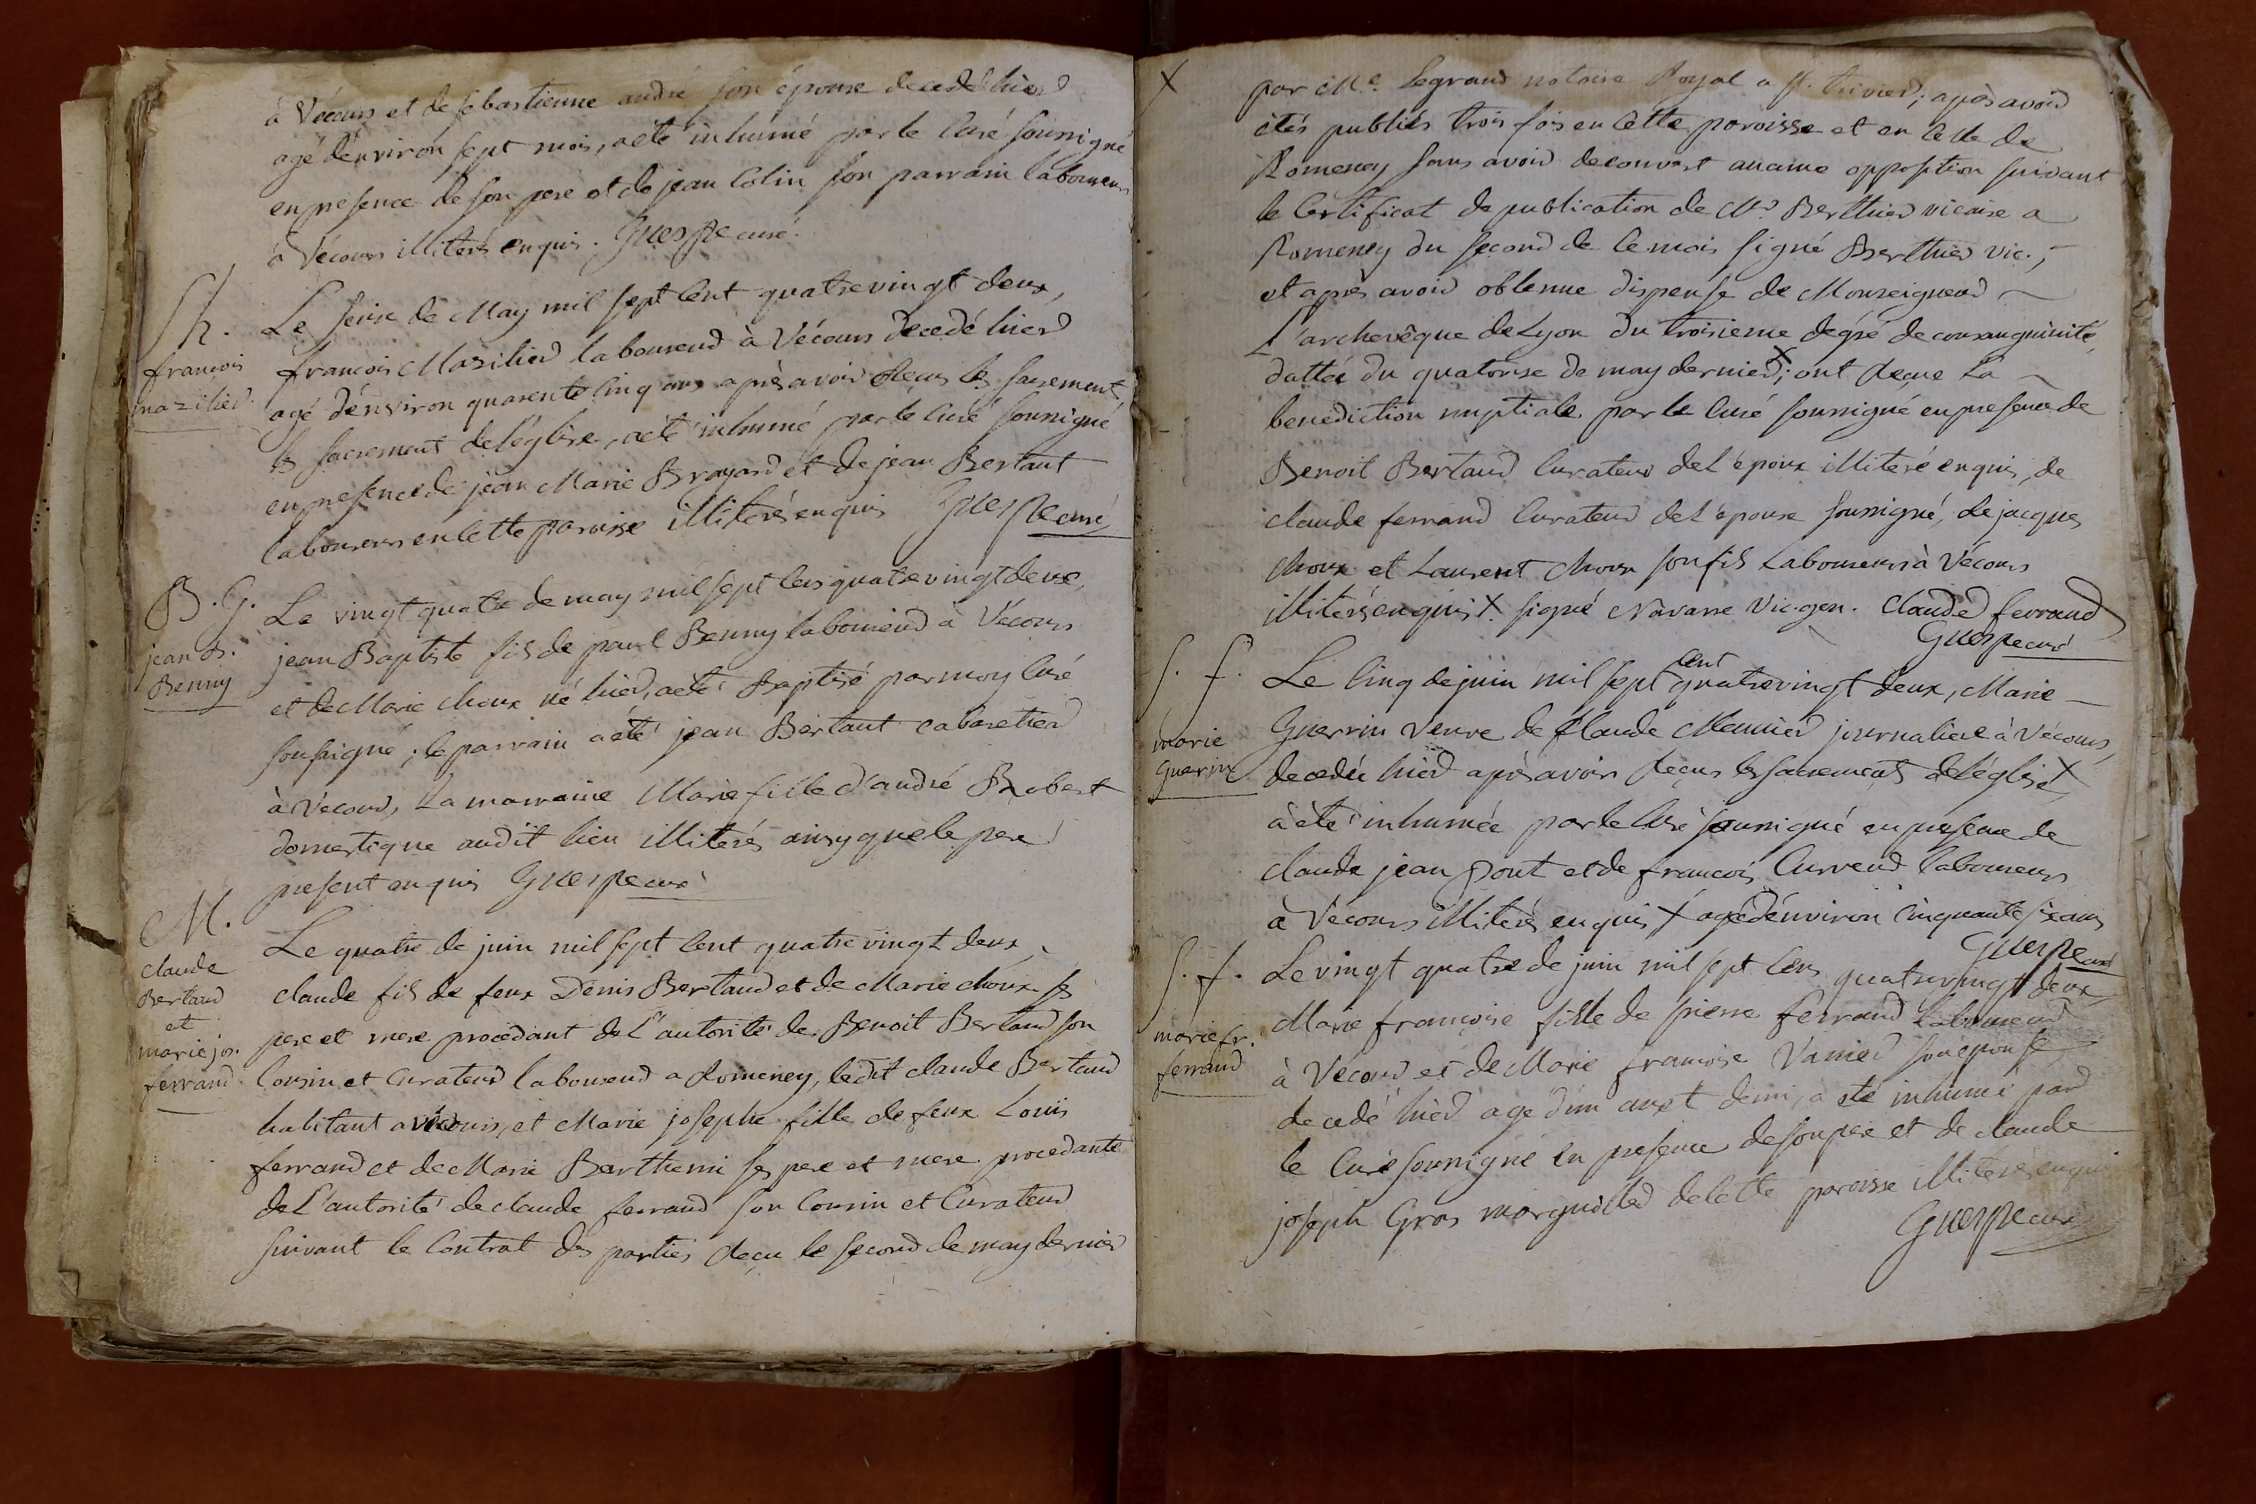 à Vécours et de sebastienne andré son épouse decedé hier
agé d'environ sept mois, a été inhumé par le curé soussigné
en presence de son pere et de jean Colin son parrain laboureurs
à Vécours illiterés enquis. Guerpe curé.
S h.
françois
mazilier
Le seise de May mil sept cent quatre vingt deux,
françois Mazilier laboureur à Vécours decedé hier
agé d'environ quarente cinq ans après avoir reçus les sacrement,
les sacrement de l'église, a été inhumé par le curé soussigné
en presence de jean Marie Broyard et de jean Bertaut
laboureurs en cette paroisse illiterés enquis Guerpe curé
B. G.
jean B.
Benny
Le vingt quatre de may mil sept cens quatre vingt deux,
jean Baptiste fils de paul Benny laboureur à Vécours
et de Marie choux né hier, a été Baptisé par moy curé
soussigné; le parrain a été jean Bertaut cabaretier
à Vécours, La marraine Marie fille d'andré Robert
domestique audit lieu illiterés ainsy que le pere
present enquis Guerpe curé
M.
claude
Bertaud
et
marie jos.
ferrand
Le quatre de juin mil sept cent quatre vingt deux,
claude fils de feux Denis Bertaud et de Marie choux ses
pere et mere procedant de L'autorité de Benoit Bertaud son
Cousin et Curateur laboureur a Romeney, ledit claude Bertaud
habitant a vécours, et Marie josephe fille de feux Louis
ferrand et de Marie Barthemi ses pere et mere procedante
de L'autorité de claude ferrand son Cousin et Curateur
suivant le Contrat des parties reçu le second de may dernier
X
par Me. Legrand notaire Royal a st. trivier; après avoir
étés publiés trois fois en cette paroisse et en celle de
Romeney sans avoir decouvert aucune opposition suivant
le Certificat de publication de Mr Berthier vicaire a
Romeney du second de ce mois signé Berthier vic.;
et après avoir obtenue dispense de Monseigneur
L'archevêque de Lyon du troisieme degré de consanguinité
dattée du quatorse de may dernier X; ont reçue La
benediction nuptiale par le curé soussigné en presence de
Benoit Bertaud Curateur de L'epoux illiteré enquis, de
claude ferrand Curateur de L'epouse soussigné, de jacques
choux et Laurent choux son fils Laboureurs à Vécours
illiterés enquis X. signé Navarre Vic. gen. Claude ferrand
Guerpe curé
S. f.
marie
Guerin
Le Cinq de juin mil sept cent quatre vingt deux, Marie
Guerrin veuve de Claude Meunier journaliere à Vécours,
decedée hier après avoir reçus les sacrements de l'église X,
a été inhumée par le curé soussigné en presence de
claude jean pont et de francois Curveur laboureurs
à Vécours illiterés enquis X agée d'environ Cinquante six ans
Guerpe curé
S. f.
marie fr.
ferrand
Le vingt quatre de juin mil sept cens quatre vingt deux,
Marie françoise fille de pierre ferrand Laboureur
à Vécours et de Marie françoise Vanier son epouse
decedé hier age d'un an et demi, a été inhumé par
le Curé soussigné en presence de son pere et de claude
joseph Gros marguillier de cette paroisse illiterés enquis
Guerpe curé